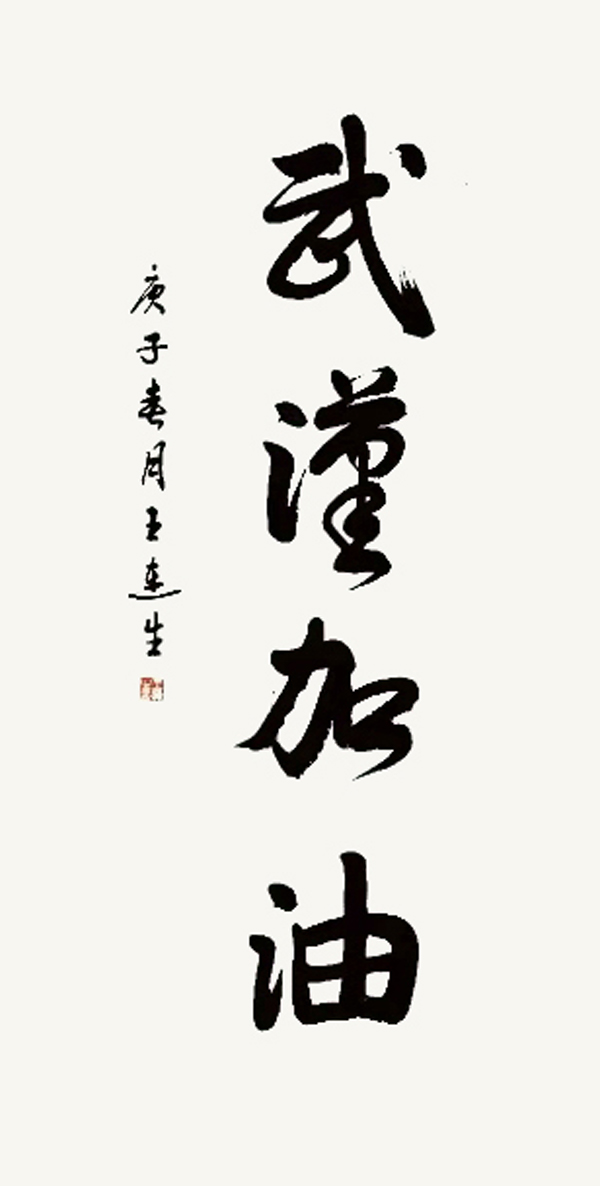 武漢加油
庚子春月王连生